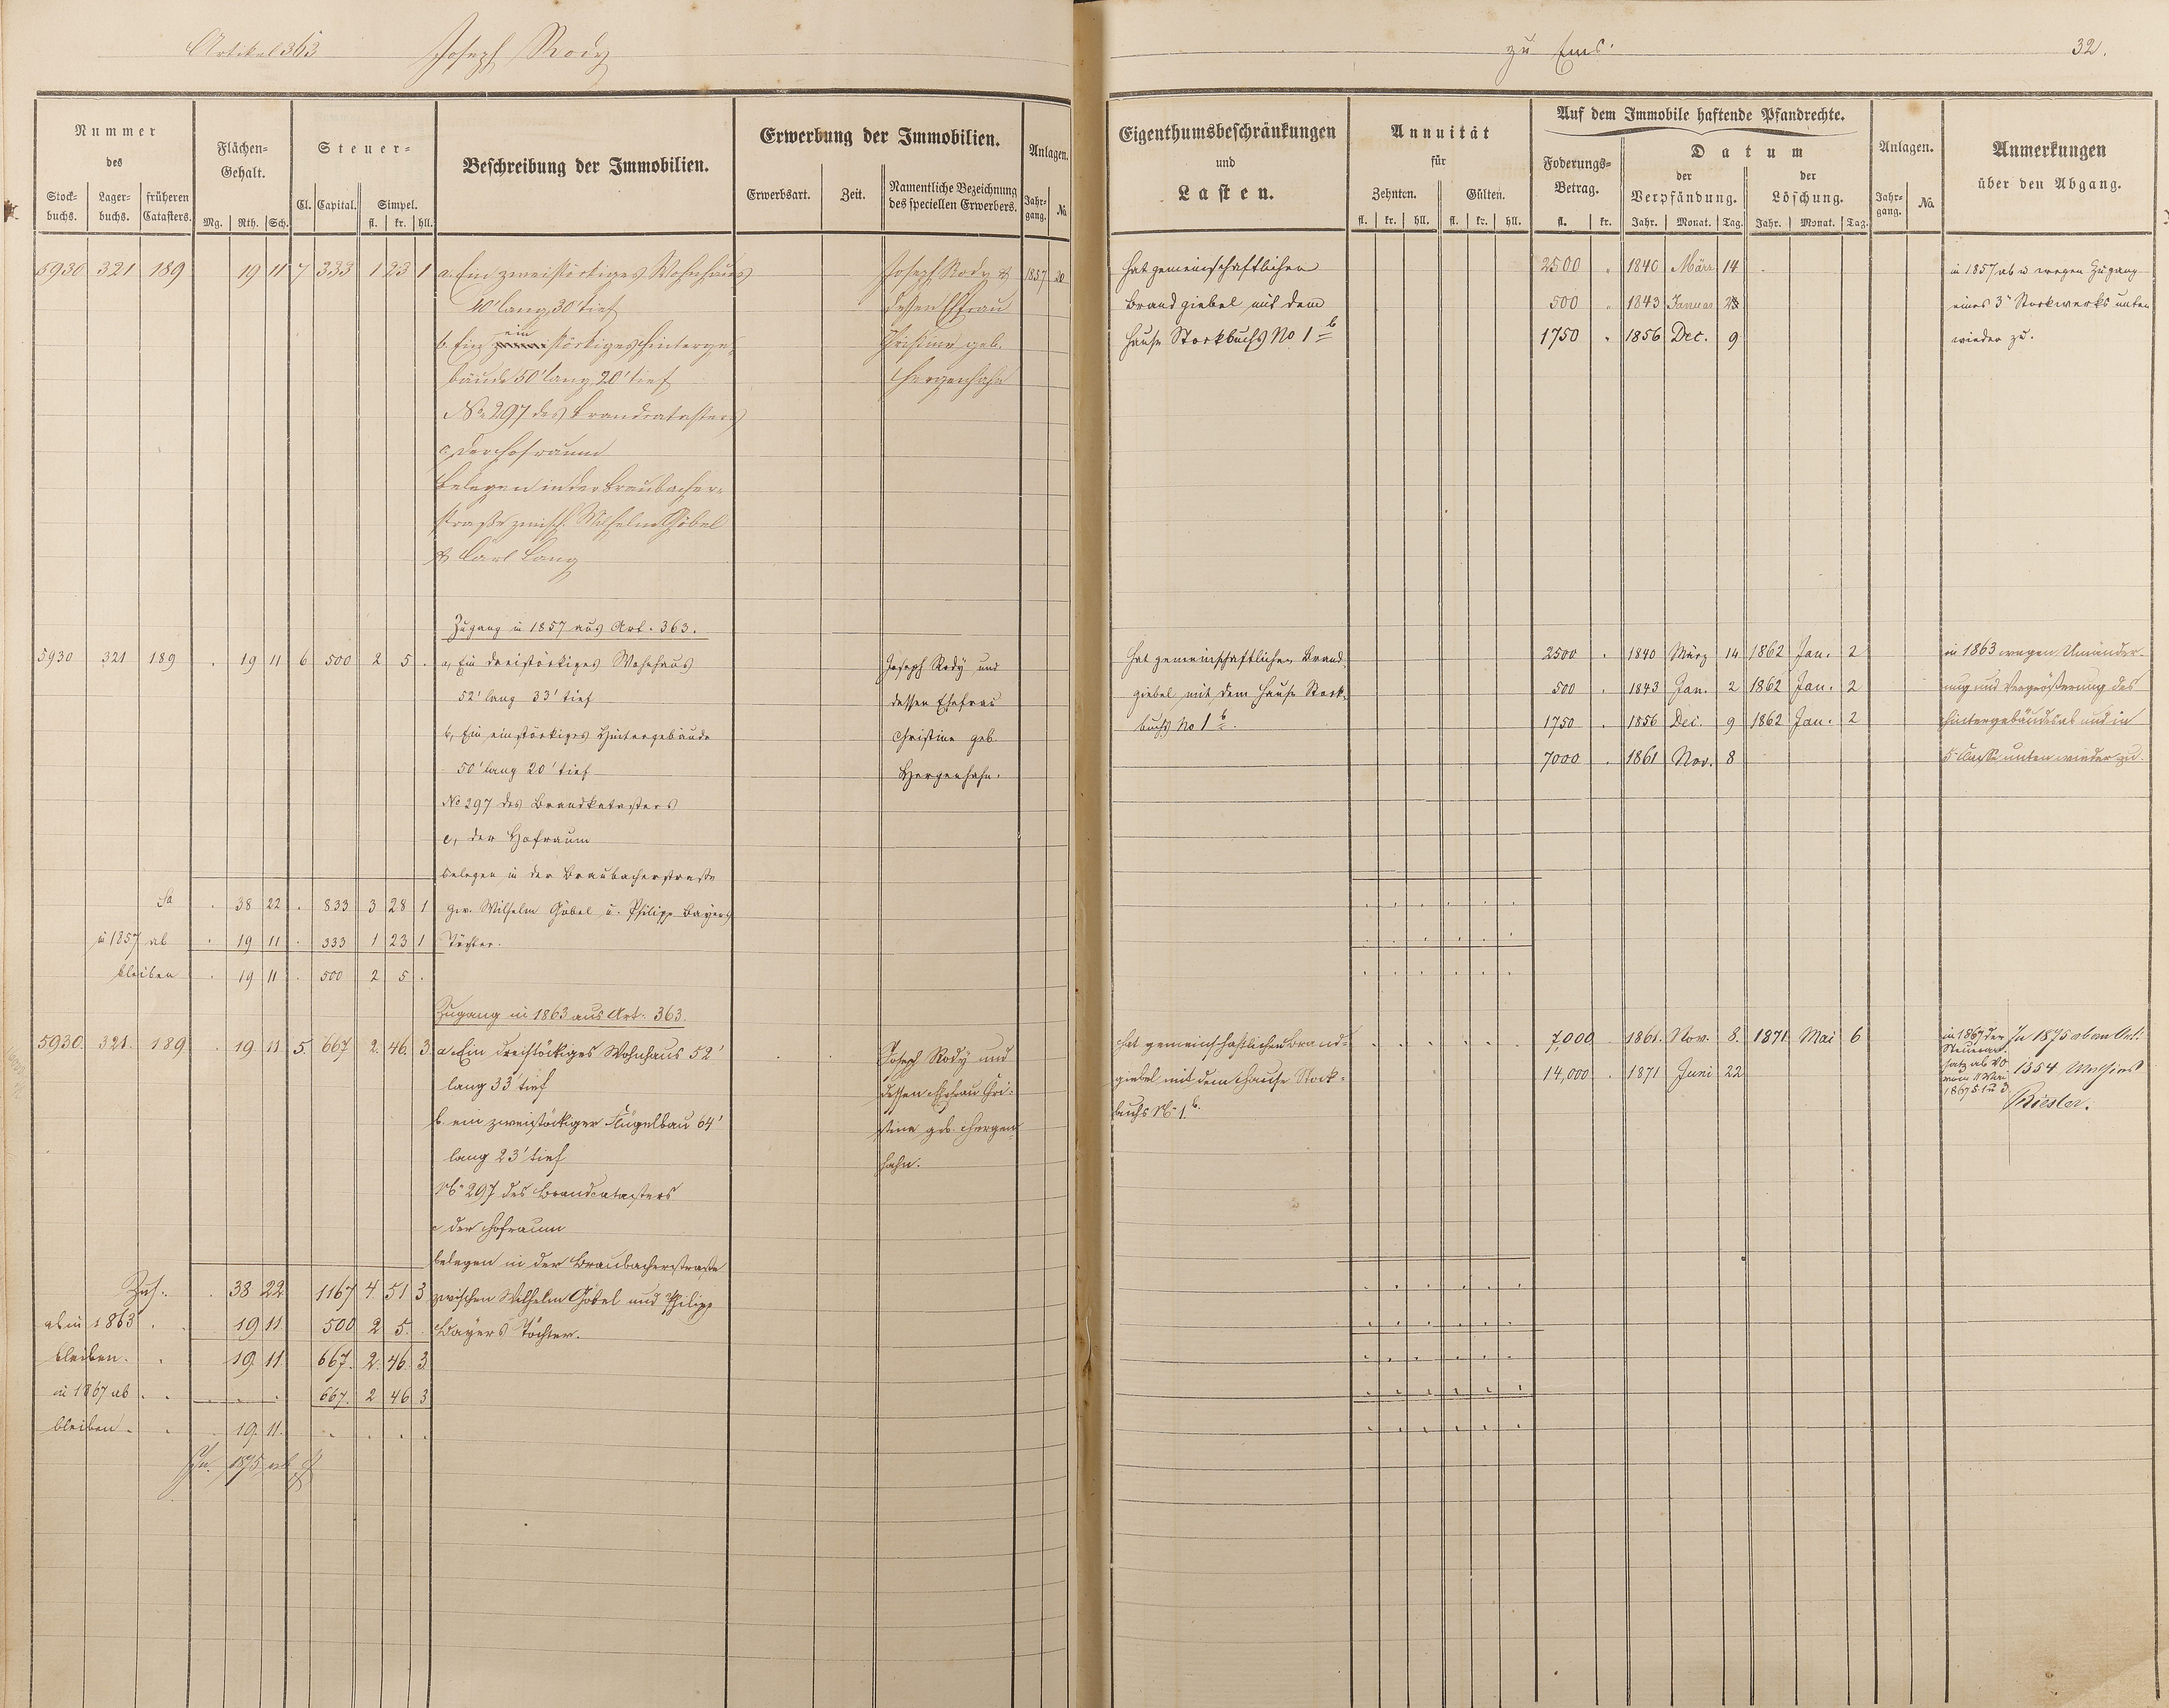 Artikel 363 Joseph Rody
zu Ems. 32.
Nummer
des
Stock-
buchs.
Lager-
buchs.
früheren
Catasters.
Flächen-
Gehalt.
Mg. Rth. Sch.
Steuer-
Cl. Capital. Simpel.
fl. kr. hll.
Beschreibung der Immobilien.
Erwerbung der Immobilien.
Erwerbsart. Zeit.
Namentliche Bezeichnung
des speciellen Erwerbers.
Anlagen.
Jahr-
gang. No.
Eigenthumsbeschränkungen
und
Lasten.
Annuität
für
Zehnten. Gülten.
fl. kr. hll. fl. kr. hll.
Auf dem Immobile haftende Pfandrechte.
Foderungs-
Betrag.
fl. kr.
Datum
der
Verpfändung.
Jahr. Monat. Tag.
der
Löschung.
Jahr. Monat. Tag.
Anlagen.
Jahr-
gang. No.
Anmerkungen
über den Abgang.
5930 321 189 19 11 7 333 1 23 1
a. Ein zweistöckiges Wohnhaus
40' lang, 30' tief
b. Ein einstöckiges Hinterge-
bäude 50' lang 20' tief
No 297 des Brandcatasters
c, Der Hofraum
belegen in der Braubacher-
straße zwisch. Wilhelm Göbel
& Carl Lang
Joseph Rody & 1857 20
dessen Ehfrau
Christine geb.
Hergenhahn
hat gemeinschaftlichen
Brandgiebel mit dem
Hause Stockbuchs No 1 b
2500 1840 März 14
500 1843 Januar
1750 1856 Dec. 9
in 1857 ab u. wegen Zugang
eines 3n Stockwerks unten
wieder zu.
Zugang in 1857 aus Art. 363.
5930 321 189 . 19 11 6 500 2 5 .
a, Ein dreistöckiges Wohnhaus
52' lang 33' tief
b, Ein einstöckiges Hintergebäude
50' lang 20' tief
No 297 des Brandkatasters
c, der Hofraum
belegen in der Braubacherstraße
zw. Wilhelm Göbel u. Philipp Bayers
Töchter.
Joseph Rody und
dessen Ehefrau
Christine geb.
Hergenhahn.
hat gemeinschaftlichen Brand-
giebel mit dem Hause Stock-
buchs No 1 b.
2500 . 1840 März 14 1862 Jan. 2
500 . 1843 Jan. 2 1862 Jan. 2
1750 . 1856 Dec. 9 1862 Jan. 2
7000 . 1861 Nov. 8
in 1863 wegen Umänder-
ung und Vergrößerung des
Hintergebäudes ab und in
5r Classe unten wieder zu.
Sa . 38 22 . 833 3 28 1
in 1857 ab . 19 11 . 333 1 23 1
bleiben . 19 11 . 500 2 5 .
Zugang in 1863 aus Art. 363.
5930. 321. 189 . 19 11 5. 667 2. 46. 3
a. Ein dreistöckiges Wohnhaus 52'
lang 33' tief
b. ein zweistöckiger Flügelbau 64'
lang 23' tief
No 297 des Brandcatasters
c der Hofraum
belegen in der Braubacherstraße
zwischen Wilhelm Göbel und Philipp
Bayers Töchter.
Joseph Rody und
dessen Ehefrau Chri-
stine geb. Hergen-
hahn.
hat gemeinschaftlichen Brand-
giebel mit dem Hause Stock-
buchs No 1. b.
7,000 . 1861. Nov. 8. 1871 Mai 6
14,000 . 1871 Juni 22
in 1867 der
Steueran-
satz ab
In 1875 ab
1554
Biesler.
Zus. . 38 22 1167 4 51 3
ab in 1863 . 19 11. 500 2 5.
bleiben. . 19. 11 667. 2. 46. 3
in 1867 ab . . 667. 2 46 3
bleiben . . 19. 11.
In 1875 ab